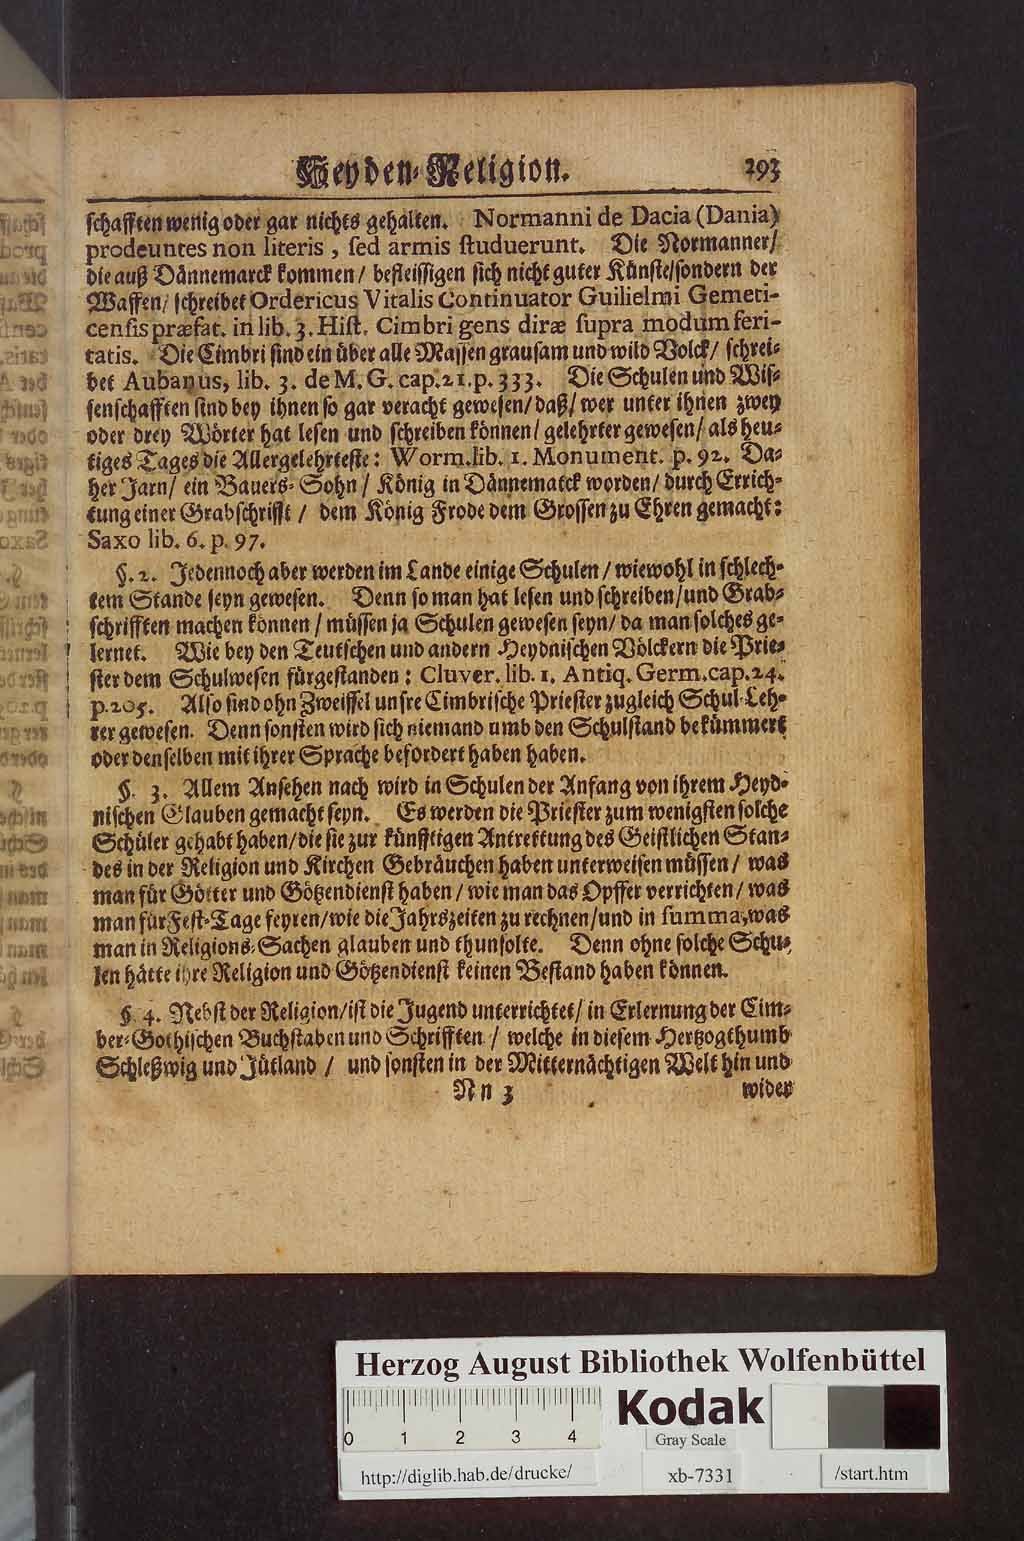 Heyden-Religion. 293
ſchafften wenig oder gar nichts gehalten. Normanni de Dacia (Dania)
prodeuntes non literis, ſed armis ſtuduerunt. Die Normanner/
die auß Dännemarck kommen/ befleiſſigen ſich nicht guter Künſte/ ſondern der
Waffen/ ſchreibet Ordericus Vitalis Continuator Guilielmi Gemeti-
cenſis præfat. in lib. 3. Hiſt. Cimbri gens diræ ſupra modum feri-
tatis. Die Cimbri ſind ein über alle Maſſen grauſam und wild Volck/ ſchrei-
bet Aubanus, lib. 3. de M. G. cap. 21. p. 333. Die Schulen und Wiſ-
ſenſchafften ſind bey ihnen ſo gar veracht geweſen/ daß/ wer unter ihnen zwey
oder drey Wörter hat leſen und ſchreiben können/ gelehrter geweſen/ als heu-
tiges Tages die Allergelehrteſte: Worm. lib. 1. Monument. p. 92. Da-
her Jarn/ ein Bauers-Sohn/ König in Dännematck worden/ durch Errich-
tung einer Grabſchrifft/ dem König Frode dem Groſſen zu Ehren gemacht:
Saxo lib. 6. p. 97.
§. 2. Jedennoch aber werden im Lande einige Schulen/ wiewohl in ſchlech-
tem Stande ſeyn geweſen. Denn ſo man hat leſen und ſchreiben/ und Grab-
ſchrifften machen können/ müſſen ja Schulen geweſen ſeyn/ da man ſolches ge-
lernet. Wie bey den Teutſchen und andern Heydniſchen Völckern die Prie-
ſter dem Schulweſen fürgeſtanden: Cluver. lib. 1. Antiq. Germ. cap. 24.
p. 205. Alſo ſind ohn Zweiffel unſre Cimbriſche Prieſter zugleich Schul-Leh-
rer geweſen. Denn ſonſten wird ſich niemand umb den Schulſtand bekümmert
oder denſelben mit ihrer Sprache befordert haben haben.
§. 3. Allem Anſehen nach wird in Schulen der Anfang von ihrem Heyd-
niſchen Glauben gemacht ſeyn. Es werden die Prieſter zum wenigſten ſolche
Schüler gehabt haben/ die ſie zur künfftigen Antrettung des Geiſtlichen Stan-
des in der Religion und Kirchen Gebräuchen haben unterweiſen müſſen/ was
man für Götter und Götzendienſt haben/ wie man das Opffer verrichten/ was
man für Feſt-Tage feyren/ wie die Jahrszeiten zu rechnen/ und in ſumma, was
man in Religions-Sachen glauben und thun ſolte. Denn ohne ſolche Schu-
len hätte ihre Religion und Götzendienſt keinen Beſtand haben können.
§. 4. Nebſt der Religion/ iſt die Jugend unterrichtet/ in Erlernung der Cim-
ber-Gothiſchen Buchſtaben und Schrifften/ welche in dieſem Hertzogthumb
Schleßwig und Jütland/ und ſonſten in der Mitternächtigen Welt hin und
Nn 3 wider
Herzog August Bibliothek Wolfenbüttel
0 1 2 3 4
Kodak
Gray Scale
http://diglib.hab.de/drucke/ xb-7331 /start.htm